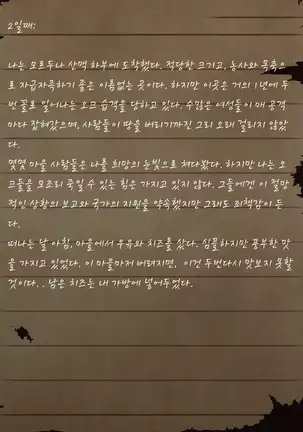 2일째:
나는 모르두나 산맥 하부에 도착했다. 적당한 크기고, 농사와 목축으
로 자급자족하기 좋은 이름없는 곳이다. 하지만 이곳은 거의 1년에 두
번 꼴로 일어나는 오크 습격을 당하고 있다. 수많은 여성들이 매 공격
마다 잡혀갔으며, 사람들이 땅을 버리기까진 그리 오래 걸리지 않았
다.
몇몇 마을 사람들은 나를 희망의 눈빛으로 쳐다봤다. 하지만 나는 오
크들을 모조리 죽일 수 있는 힘은 가지고 있지 않다. 그들에겐 이 절망
적인 상황의 보고와 국가의 지원을 약속했지만 그래도 죄책감이 든
다.
떠나는 날 아침, 마을에서 우유와 치즈를 샀다. 심플하지만 풍부한 맛
을 가지고 있었다. 이 마을마저 버려지면, 이건 두번다시 맛보지 못할
것이다. . 남은 치즈는 내 가방에 넣어두었다.